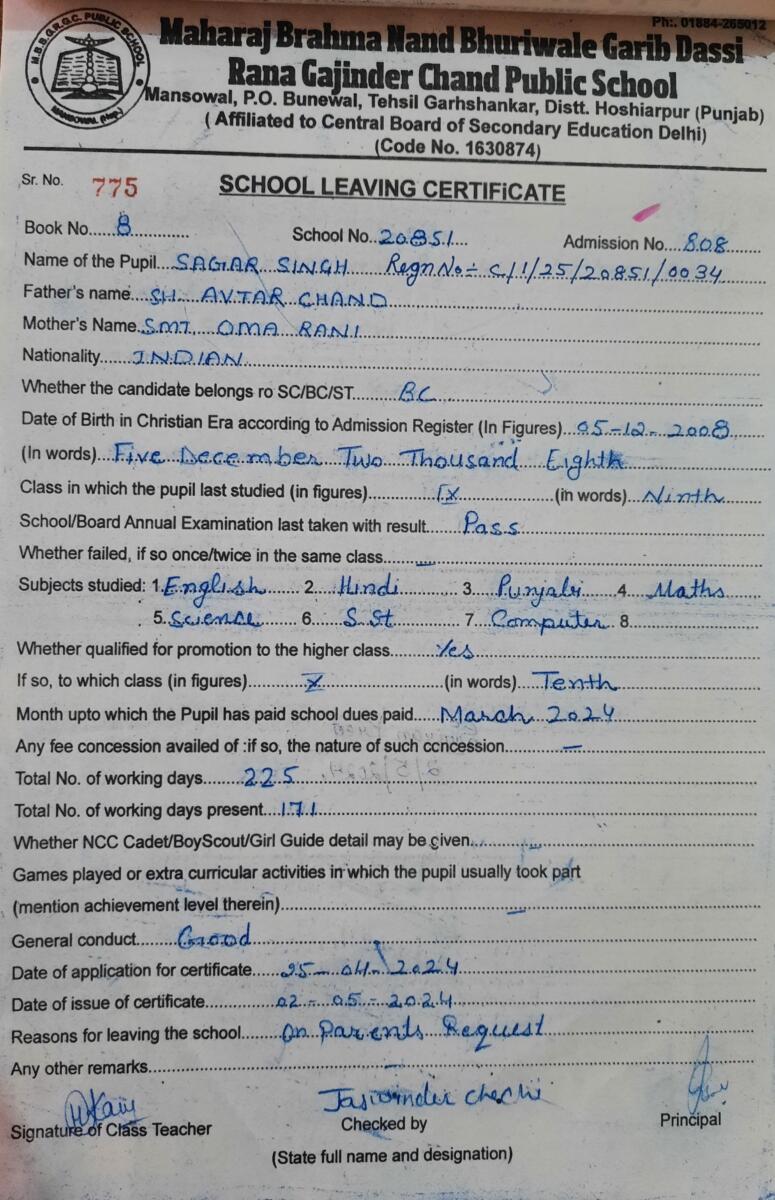 Ph:. 01884-265012
M.B.B.G.R.G.C. PUBLIC SCHOOL
MANSOWAL (Hsp.)
Maharaj Brahma Nand Bhuriwale Garib Dassi
Rana Gajinder Chand Public School
Mansowal, P.O. Bunewal, Tehsil Garhshankar, Distt. Hoshiarpur (Punjab)
( Affiliated to Central Board of Secondary Education Delhi)
(Code No. 1630874)
Sr. No. 775 SCHOOL LEAVING CERTIFiCATE
Book No. 8 School No. 20851 Admission No. 808
Name of the Pupil SAGAR SINGH Regn No:- C/1/25/20851/0034
Father's name SH. AVTAR CHAND
Mother's Name SMT. OMA RANI
Nationality INDIAN
Whether the candidate belongs ro SC/BC/ST BC
Date of Birth in Christian Era according to Admission Register (In Figures) 05-12-2008
(In words) Five December Two Thousand Eighth
Class in which the pupil last studied (in figures) IX (in words) Ninth
School/Board Annual Examination last taken with result Pass
Whether failed, if so once/twice in the same class
Subjects studied: 1. English 2. Hindi 3. Punjabi 4. Maths
5. Science 6. S.St 7. Computer 8.
Whether qualified for promotion to the higher class Yes
If so, to which class (in figures) X (in words) Tenth
Month upto which the Pupil has paid school dues paid March 2024
Any fee concession availed of :if so, the nature of such concession —
Total No. of working days 225
Total No. of working days present 171
Whether NCC Cadet/BoyScout/Girl Guide detail may be given —
Games played or extra curricular activities in which the pupil usually took part
(mention achievement level therein) —
General conduct Good
Date of application for certificate 25-04-2024
Date of issue of certificate 02-05-2024
Reasons for leaving the school On Parents Request
Any other remarks —
Jaswinder Chechi
Signature of Class Teacher Checked by Principal
(State full name and designation)